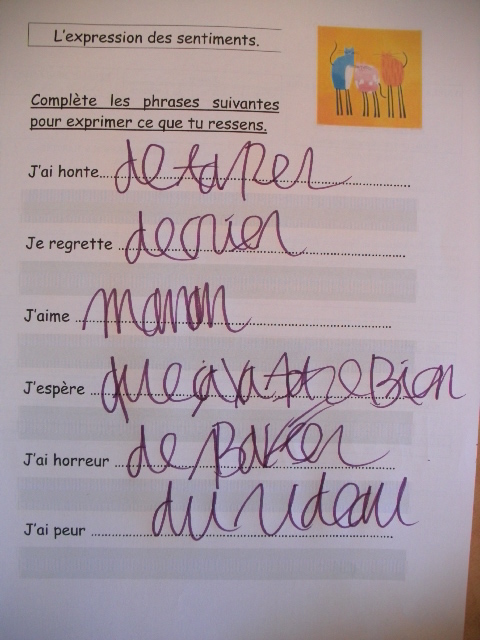 L'expression des sentiments.
Complète les phrases suivantes
pour exprimer ce que tu ressens.
J'ai honte de taper
Je regrette de crier
J'aime maman
J'espère que ça va être Bien
J'ai horreur de
J'ai peur du rideau